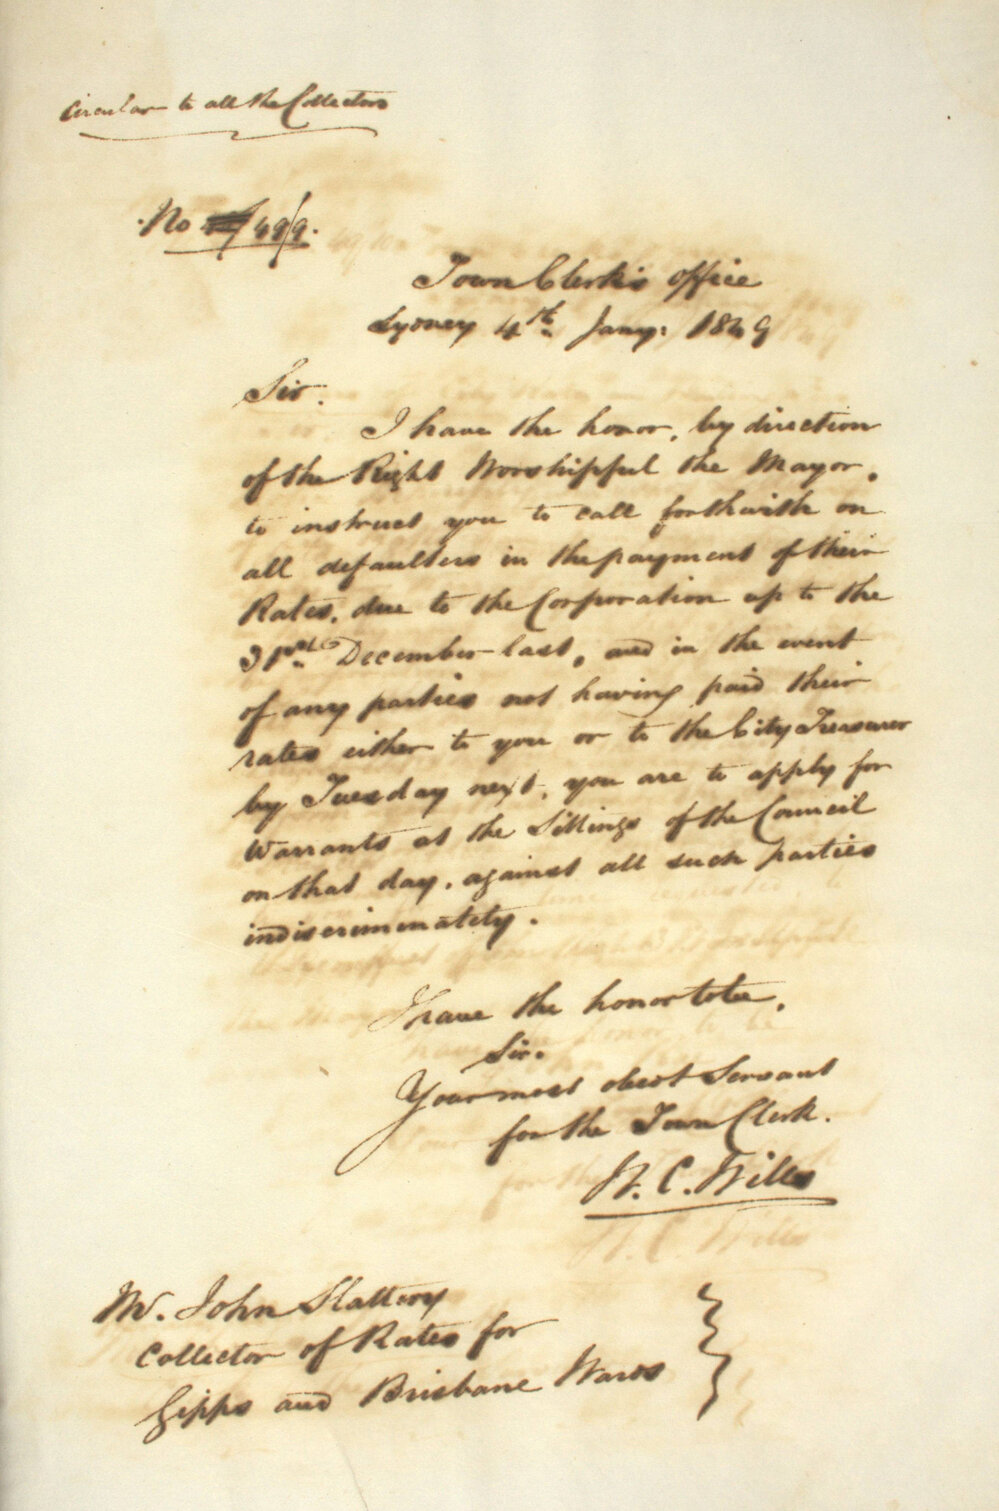 Circular to all the Collectors
No 49/9.
Town Clerk's office
Sydney 4th Jany: 1849
Sir.
I have the honor, by direction
of the Right Worshipful the Mayor,
to instruct you to call forthwith on
all defaulters in the payment of their
Rates, due to the Corporation up to the
31st December last, and in the event
of any parties not having paid their
rates either to you or to the City Treasurer
by Tuesday next, you are to apply for
Warrants at the Sittings of the Council
on that day, against all such parties
indiscriminately.
I have the honor to be,
Sir.
Your most obedt Servant
for the Town Clerk.
W. C. Wills
Mr. John Slattery
Collector of Rates for
Gipps and Brisbane Wards